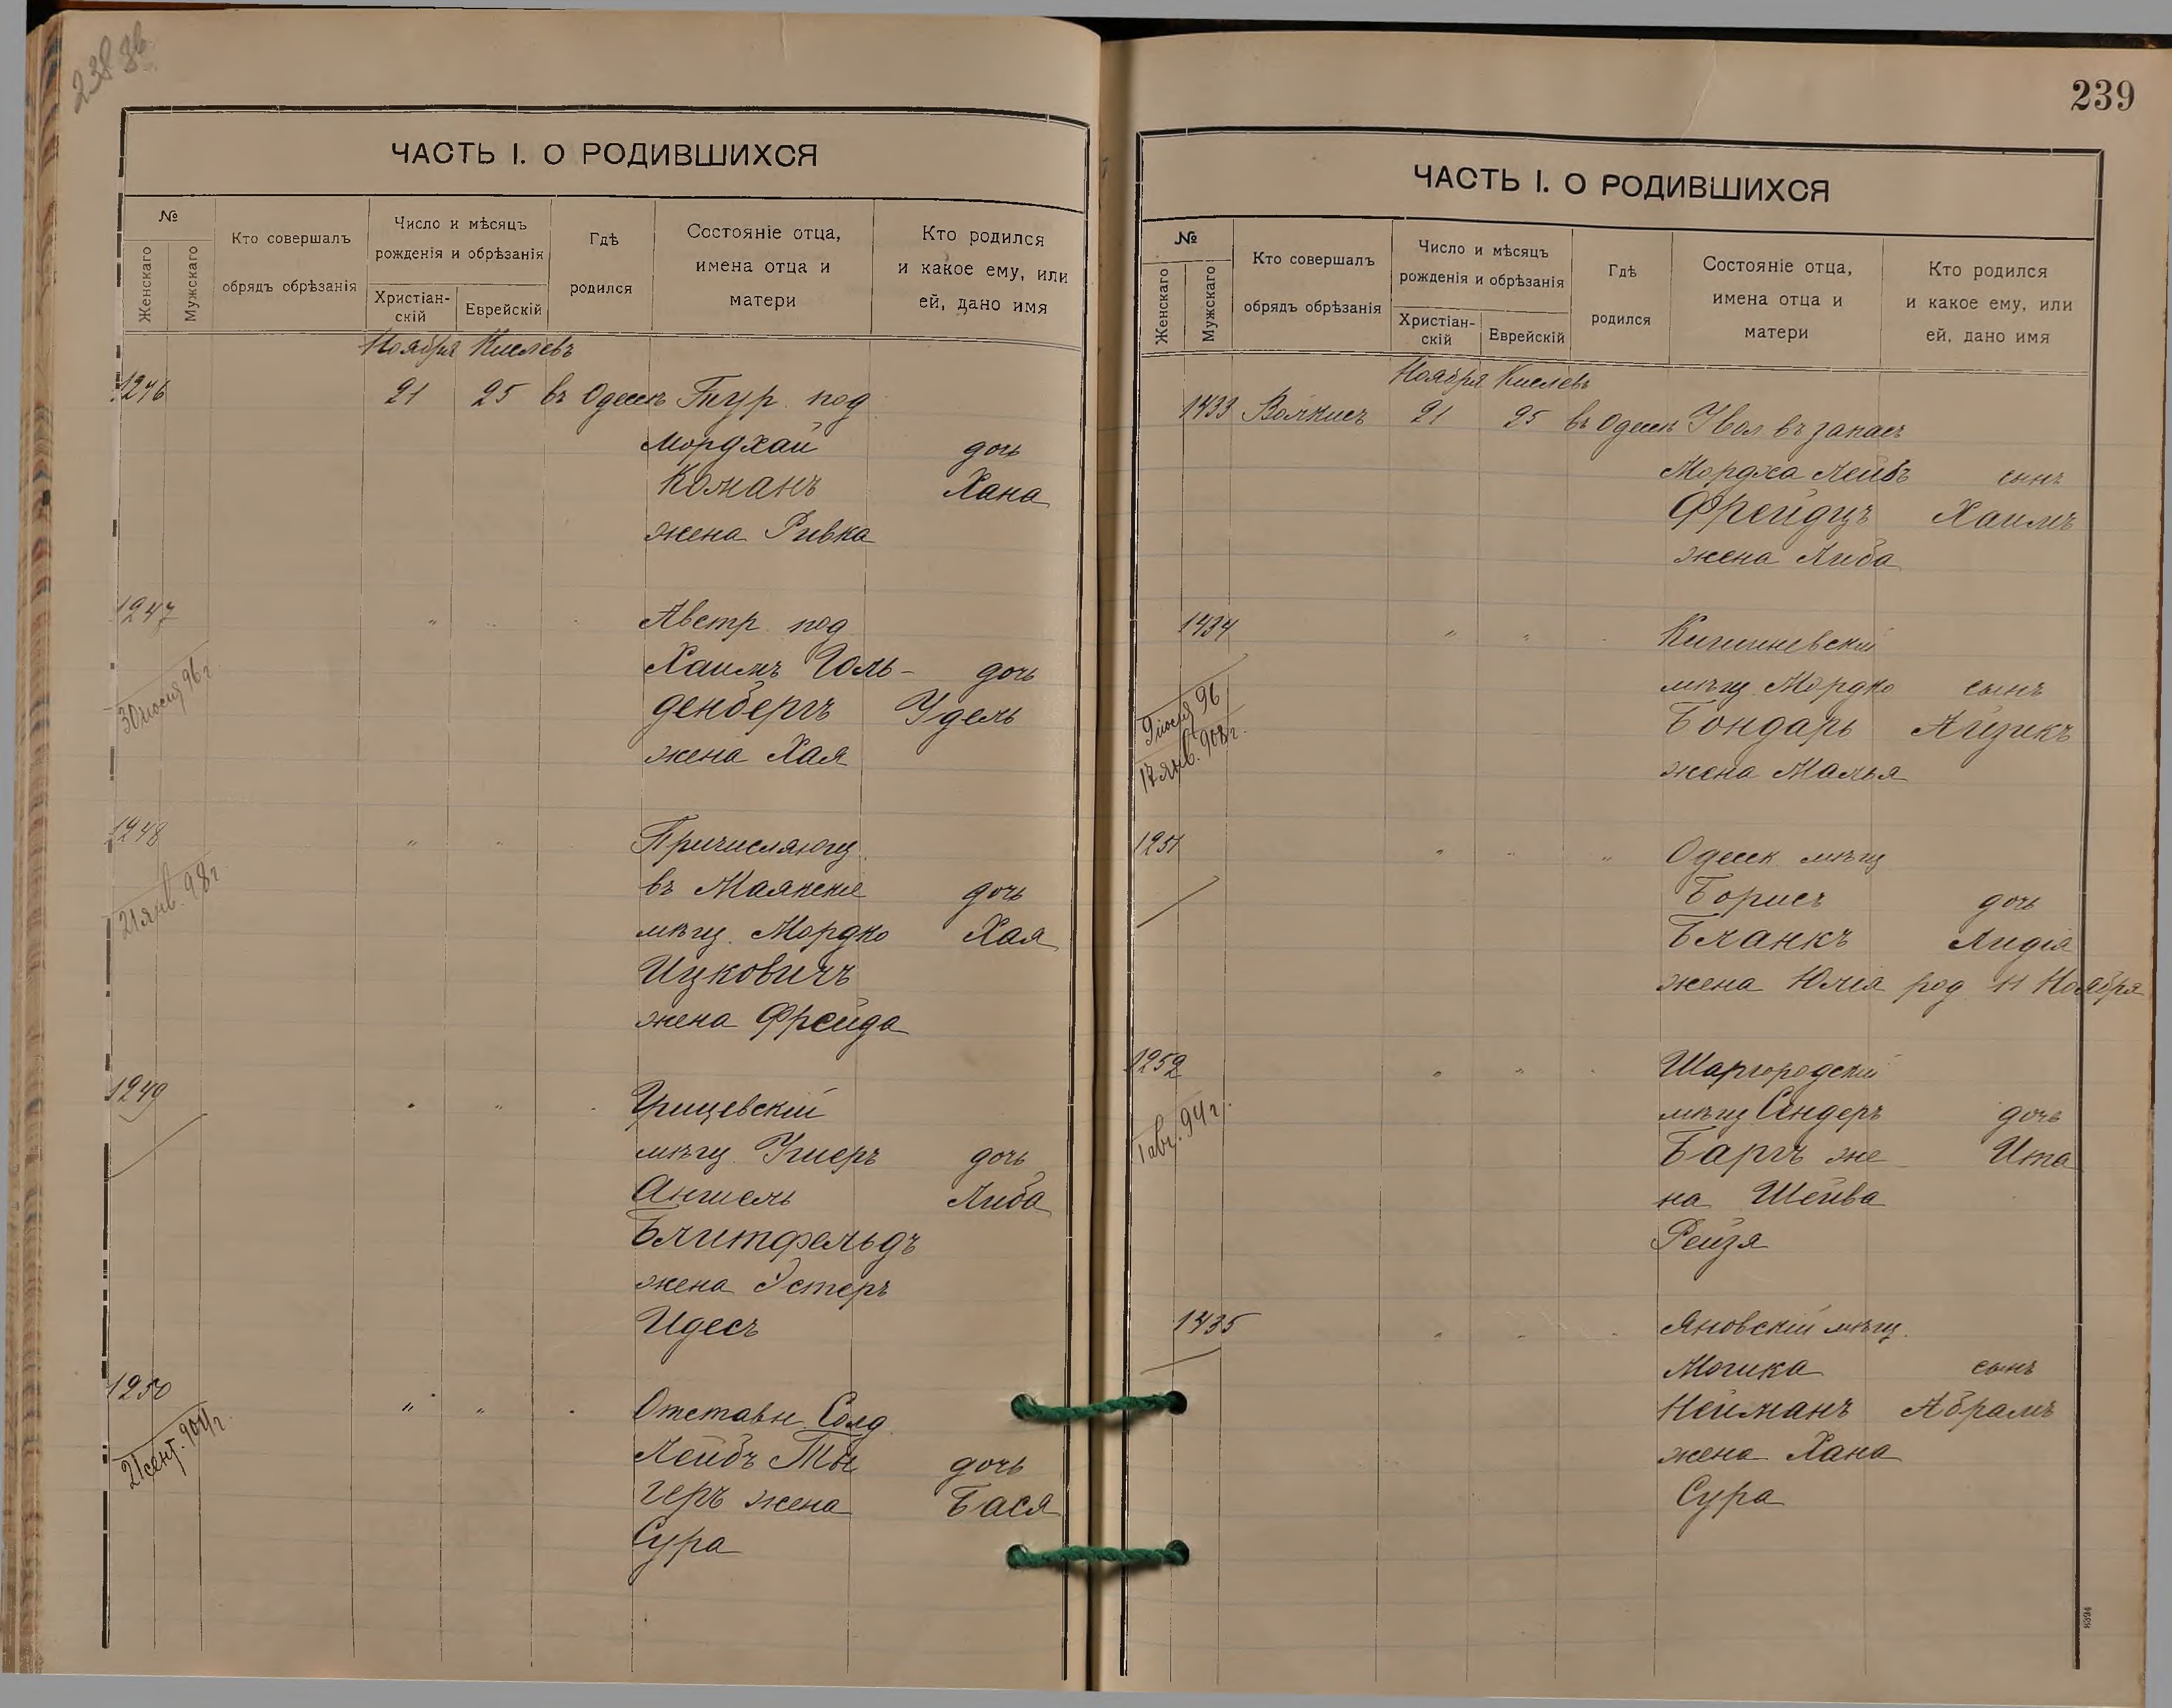 238 об
ЧАСТЬ I. О РОДИВШИХСЯ
№
Женскаго
Мужскаго
Кто совершалъ
обрядъ обрѣзанія
Число и мѣсяцъ
рожденія и обрѣзанія
Христіан-
скій
Еврейскій
Гдѣ
родился
Состояніе отца,
имена отца и
матери
Кто родился
и какое ему, или
ей, дано имя
Ноября Кислевъ
1246 21 25 въ Одессѣ Тур. под
Мордхай дочь
Команъ Хана
жена Ривка
1247 " " " Австр. под
Хаимъ Голь- дочь
денбергъ Удель
жена Хая
30 96 г
1248 " " Причисляющ.
въ Маякскіе дочь
мѣщ. Мордко Хая
Ицковичъ
жена Фрейда
21 янв. 98 г
1249 " " "
мѣщ. Ушеръ дочь
Аншель Либа
Блитфельдъ
жена Эстеръ
Идесъ
1250 " " " Отставн. Солд
Лейбъ дочь
геръ жена Бася
Сура
21 сент. 904 г
239
ЧАСТЬ I. О РОДИВШИХСЯ
№
Женскаго
Мужскаго
Кто совершалъ
обрядъ обрѣзанія
Число и мѣсяцъ
рожденія и обрѣзанія
Христіан-
скій
Еврейскій
Гдѣ
родился
Состояніе отца,
имена отца и
матери
Кто родился
и какое ему, или
ей, дано имя
Ноября Кислевъ
1433 Волкисъ 21 25 въ Одессѣ Увол въ запасъ
Мордха Лейбъ сынъ
Фрейдцъ Хаимъ
жена Либа
1434 " " " Кишиневскій
мѣщ. Мордко сынъ
Бондарь Айзикъ
жена Малья
9 96
17 янв. 908 г.
1251 " " " Одесск. мѣщ
Борисъ дочь
Бланкъ Лидія
жена Юлія род 11 Ноября
1252 " " " Шаргородскій
мѣщ Сендеръ дочь
Баргъ же- Ита
на Шейва
Рейзя
1 авг. 94 г.
1435 " " " Яновскій мѣщ.
Мошка сынъ
Нейманъ Абрамъ
жена Хана
Сура